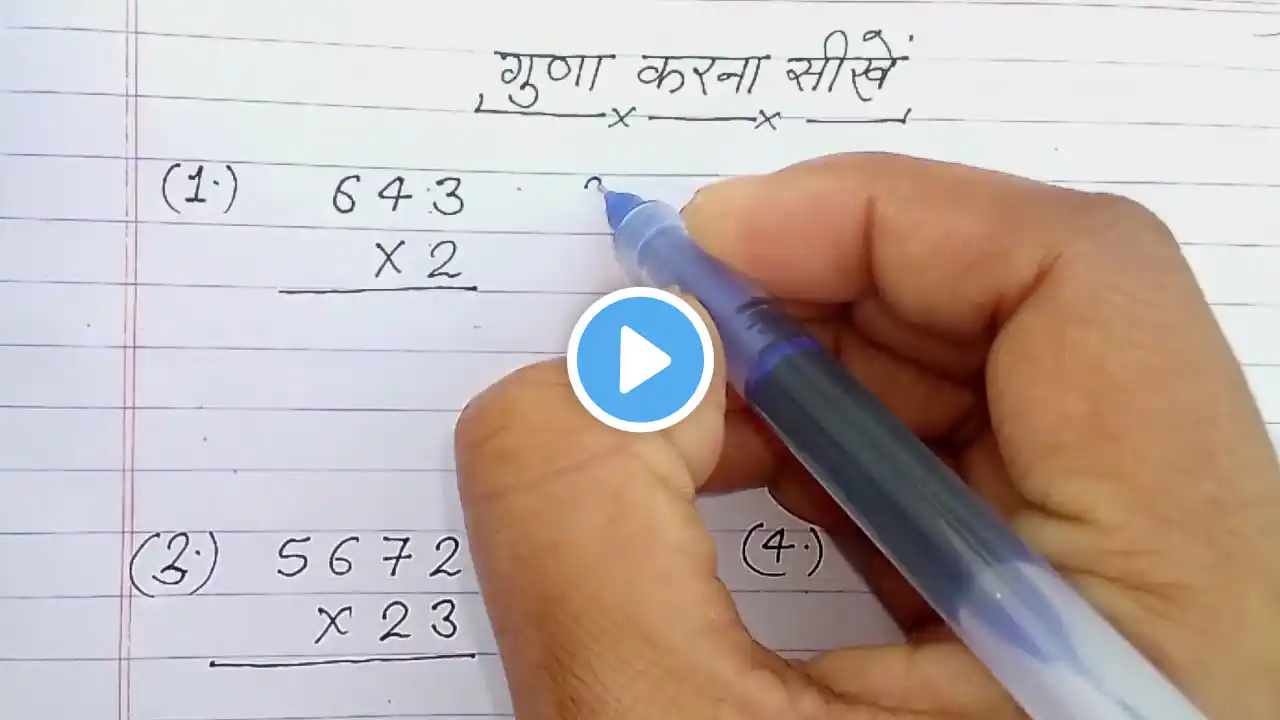 गुणा करना सीखें
x x
(1.) 643
x 2
(3.) 5672
x 23
(4.)